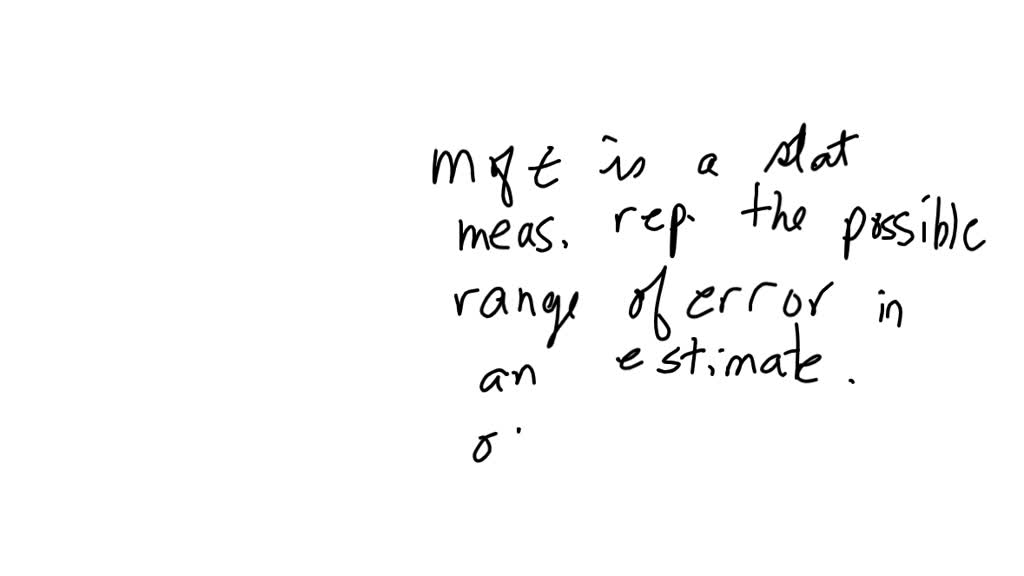 M of E is a stat
meas. rep. the possible
range of error in
an estimate.